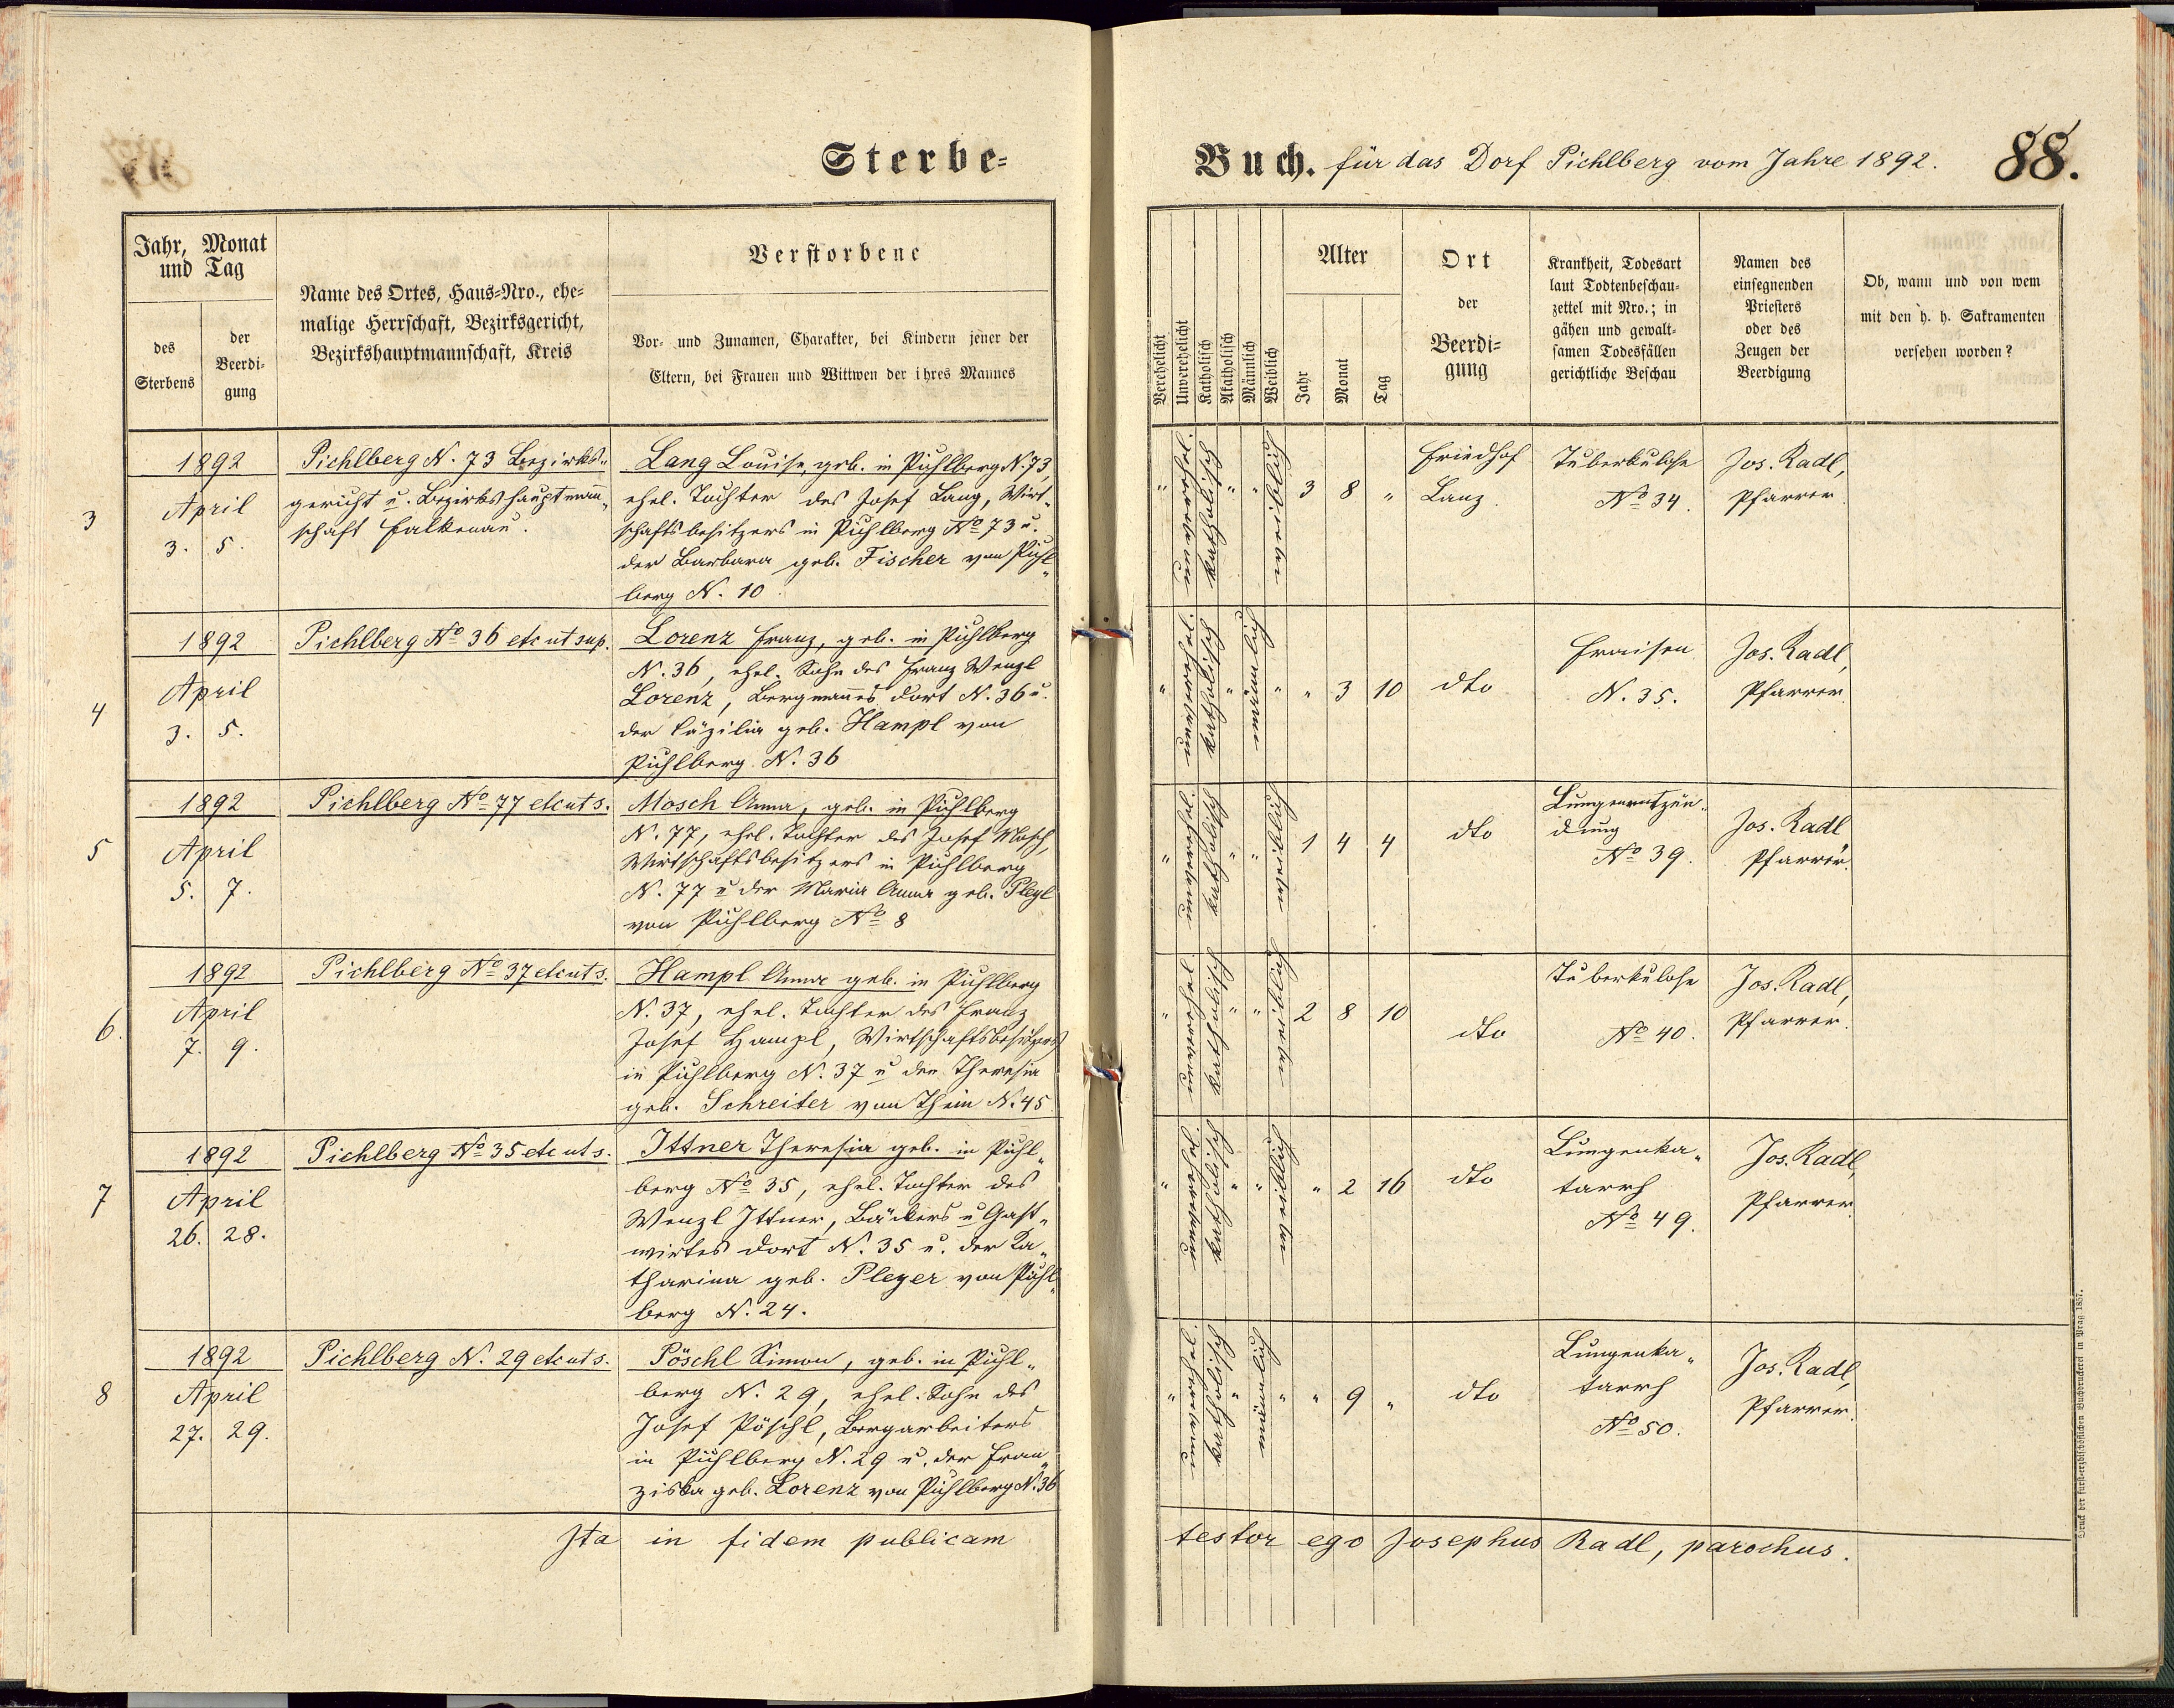 Sterbe-
Buch. für das Dorf Pichlberg vom Jahre 1892. 88.
Jahr, Monat
und Tag
des
Sterbens
der
Beerdi-
gung
Name des Ortes, Haus-Nro., ehe-
malige Herrschaft, Bezirksgericht,
Bezirkshauptmannschaft, Kreis
Verstorbene
Vor- und Zunamen, Charakter, bei Kindern jener der
Eltern, bei Frauen und Wittwen der ihres Mannes
Verehelicht
Unverehelicht
Katholisch
Akatholisch
Männlich
Weiblich
Alter
Jahr
Monat
Tag
Ort
der
Beerdi-
gung
Krankheit, Todesart
laut Todtenbeschau-
zettel mit Nro.; in
gähen und gewalt-
samen Todesfällen
gerichtliche Beschau
Namen des
einsegnenden
Priesters
oder des
Zeugen der
Beerdigung
Ob, wann und von wem
mit den h. h. Sakramenten
versehen worden?
3
1892
April
3. 5.
Pichlberg N. 73 Bezirks-
gericht u. Bezirkshauptmann-
schaft Falkenau.
Lang Louise, geb. in Pichlberg N. 73,
ehel. Tochter des Josef Lang, Wirt-
schaftsbesitzers in Pichlberg No 73 u.
der Barbara geb. Fischer von Pichl-
berg N. 10
" unverehel. katholisch " " weiblich 3 8 "
Friedhof
Lanz.
Tuberkulose
No 34.
Jos. Radl,
Pfarrer.
4
1892
April
3. 5.
Pichlberg No 36 etc ut sup.
Lorenz Franz, geb. in Pichlberg
N. 36, ehel. Sohn des Franz Wenzl
Lorenz, Bergmannes dort N. 36 u.
der Cäzilia geb. Hampl von
Pichlberg N. 36
" unverehel. katholisch " männlich " " 3 10
dto
Fraisen
N. 35.
Jos. Radl,
Pfarrer.
5
1892
April
5. 7.
Pichlberg No 77 etc ut s.
Mosch Anna, geb. in Pichlberg
N. 77, ehel. Tochter des Josef Mosch,
Wirtschaftsbesitzers in Pichlberg
N. 77 u der Maria Anna geb. Plegl
von Pichlberg No 8
" unverehel. katholisch " " weiblich 1 4 4
dto
Lungenentzün-
dung
No 39.
Jos. Radl
Pfarrer.
6.
1892
April
7. 9.
Pichlberg No 37 etc ut s.
Hampl Anna geb. in Pichlberg
N. 37, ehel. Tochter des Franz
Josef Hampl, Wirtschaftsbesitzers
in Pichlberg N. 37 u der Theresia
geb. Schreiter von Thein N. 45
" unverehel. katholisch " " weiblich 2 8 10
dto
Tuberkulose
No 40.
Jos. Radl,
Pfarrer.
7
1892
April
26. 28.
Pichlberg No 35 etc ut s.
Ittner Theresia geb. in Pichl-
berg No 35, ehel. Tochter des
Wenzl Ittner, Bäckers u Gast-
wirtes dort N. 35 u. der Ka-
tharina geb. Pleyer von Pichl-
berg N. 24.
" unverehel. katholisch " " weiblich " 2 16
dto
Lungenka-
tarrh
No 49.
Jos. Radl,
Pfarrer.
8
1892
April
27. 29.
Pichlberg N. 29 etc ut s.
Pöschl Simon, geb. in Pichl-
berg N. 29, ehel. Sohn des
Josef Pöschl, Bergarbeiters
in Pichlberg N. 29 u. der Fran-
ziska geb. Lorenz von Pichlberg N. 36
" unverehel. katholisch " männlich " " 9 "
dto
Lungenka-
tarrh
No 50.
Jos. Radl,
Pfarrer.
Ita in fidem publicam testor ego Josephus Radl, parochus.
Druck der fürst-erzbischöflichen Buchdruckerei in Prag 1857.